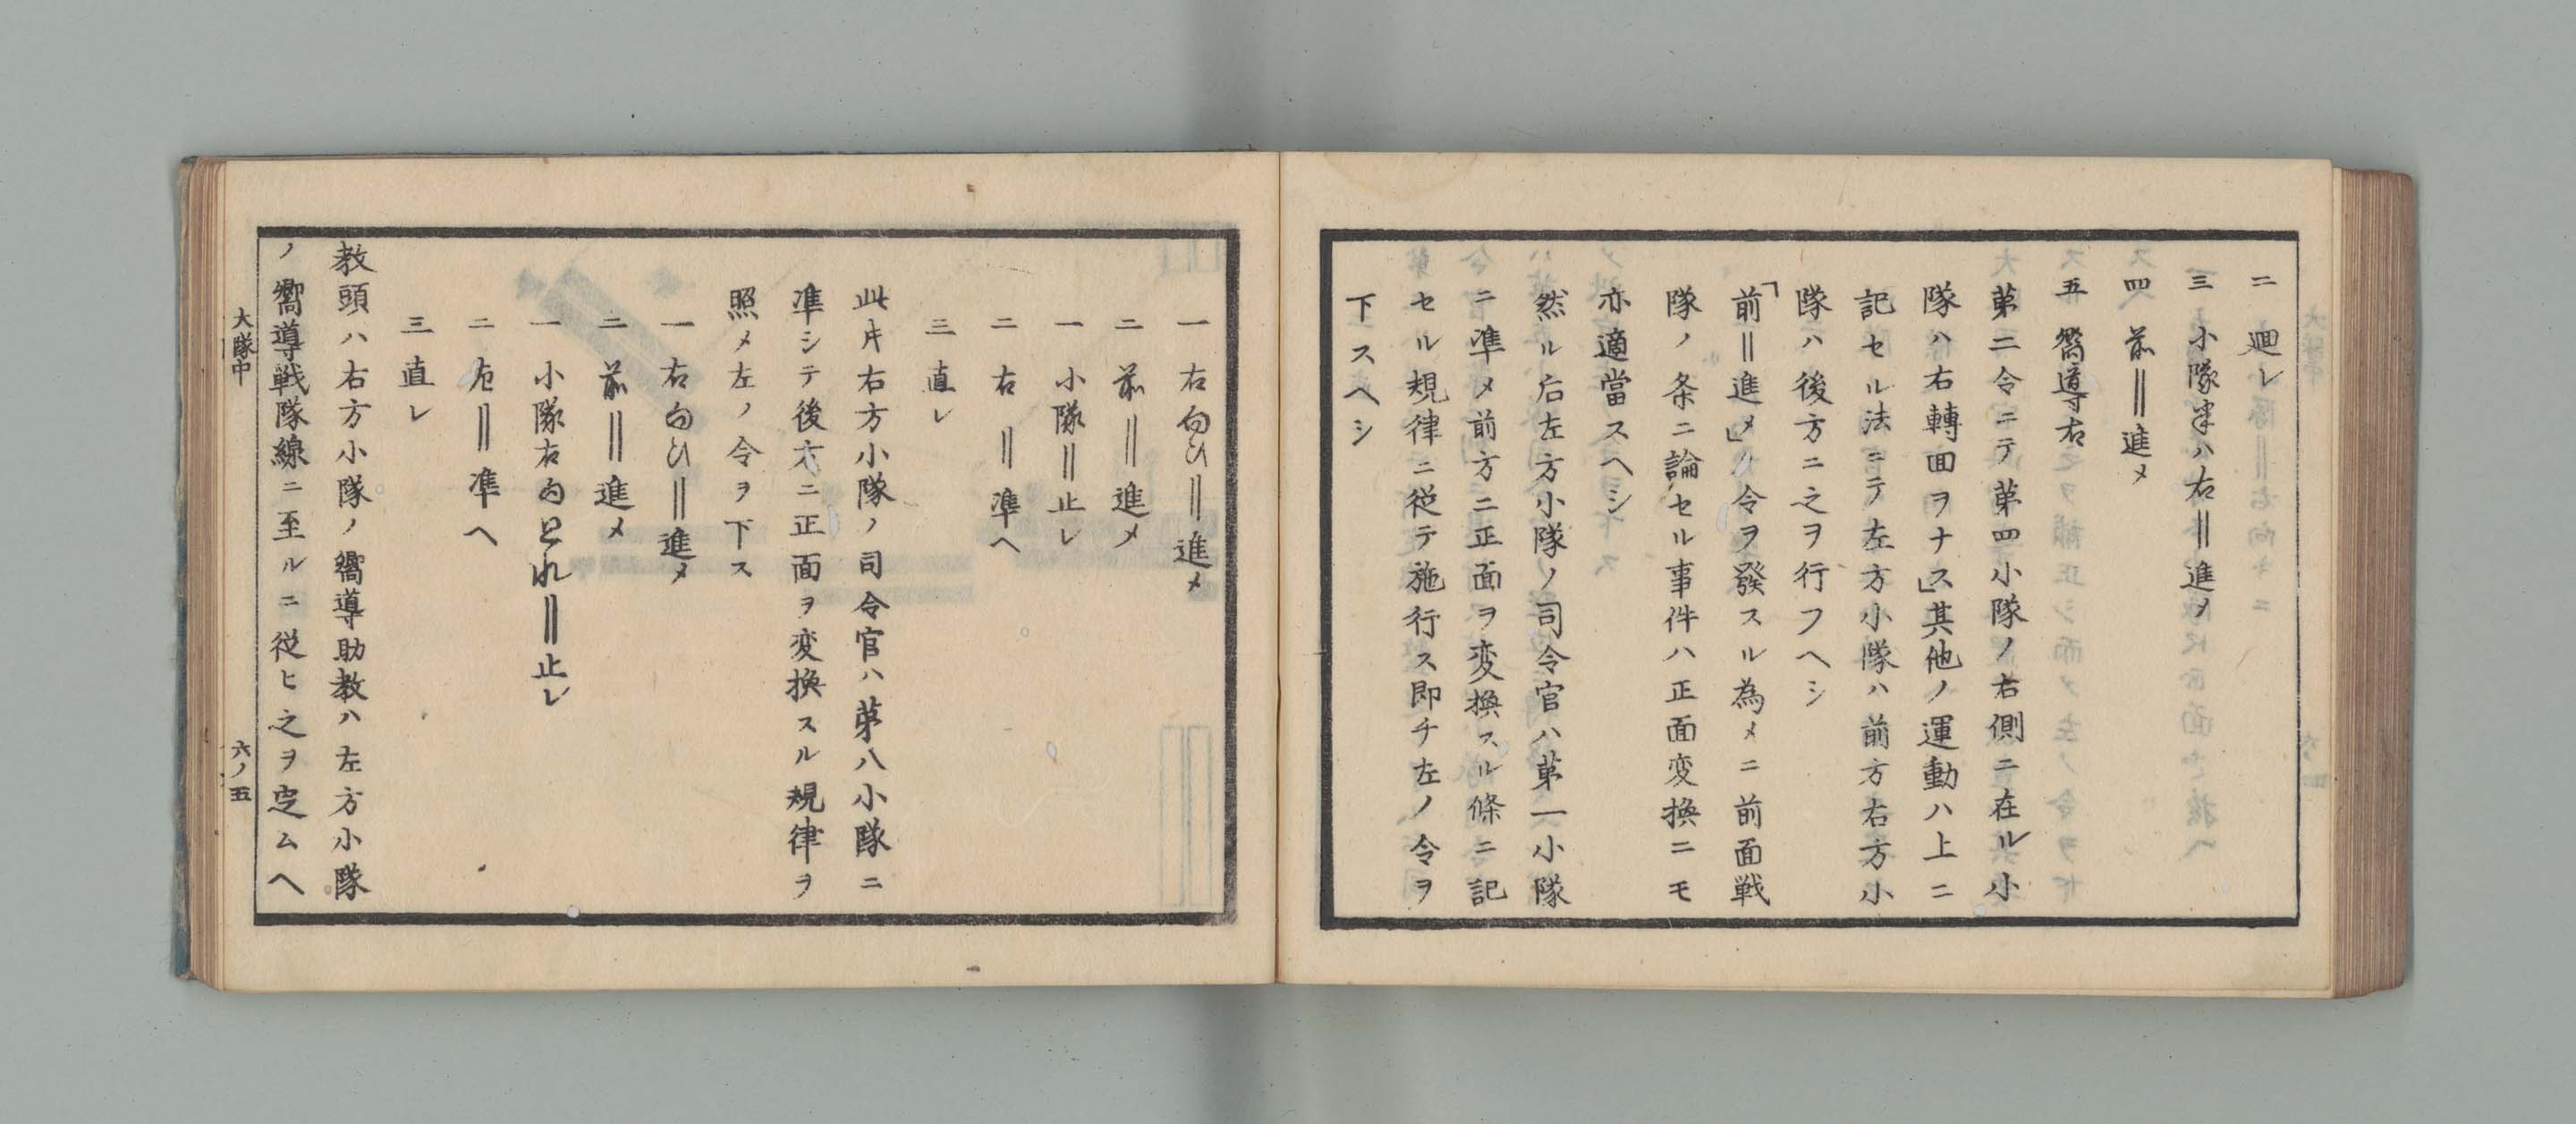 二 廻レ
三 小隊半ハ右‖進メ
四 前‖進メ
五 嚮導右
第二令ニテ第四小隊ノ右側ニ在ル小
隊ハ右轉回ヲナス」其他ノ運動ハ上ニ
記セル法ニテ左方小隊ハ前方右方小
隊ハ後方ニ之ヲ行フヘシ
「前‖進メ」ノ令ヲ發スル為メニ前面戦
隊ノ条ニ論セル事件ハ正面変換ニモ
亦適當スヘシ
然ル后左方小隊ノ司令官ハ第一小隊
ニ準メ前方ニ正面ヲ変換スル條ニ記
セル規律ニ従テ施行ス即チ左ノ令ヲ
下スヘシ
一 右向ひ‖進メ
二 前‖進メ
一 小隊‖止レ
二 右‖準ヘ
三 直レ
此片右方小隊ノ司令官ハ第八小隊ニ
準シテ後方ニ正面ヲ変換スル規律ヲ
照メ左ノ令ヲ下ス
一 右向ひ‖進メ
二 前‖進メ
一 小隊右向どれ‖止レ
二 左‖準ヘ
三 直レ
教頭ハ右方小隊ノ嚮導助教ハ左方小隊
ノ嚮導戦隊線ニ至ルニ従ヒ之ヲ定ムヘ
大隊中
六ノ五